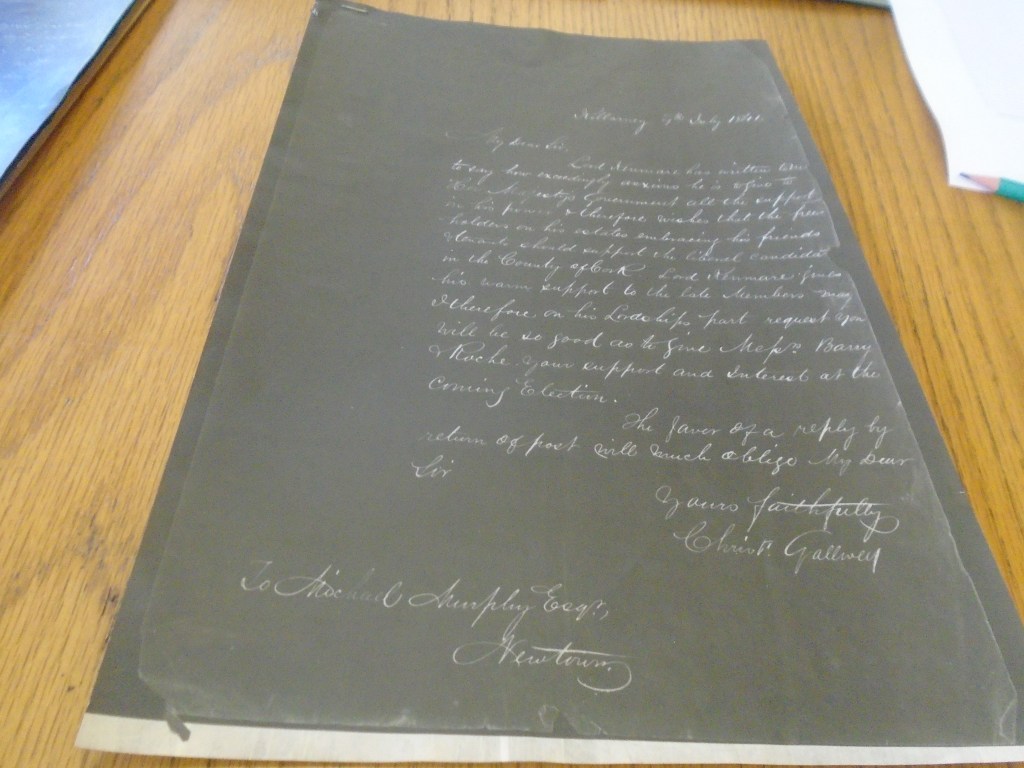 Killarney 9th July 1841
My dear Sir
Lord Kenmare has written
to say how exceedingly anxious he is to give to
Her Majestys Government all the support
in his power & therefore wishes that the free
holders on his estates embracing his friends &
tenants should support the liberal candidates
in the County of Cork Lord Kenmare gives
his warm support to the late Members may
I therefore on his Lordships part request you
will be so good as to give Messrs Barry
& Roche your support and interest at the
Coming Election.
The favor of a reply by
return of post will much oblige My Dear
Sir
Yours faithfully
Christr Gallwey
To Michael Murphy Esqr,
Newtown,